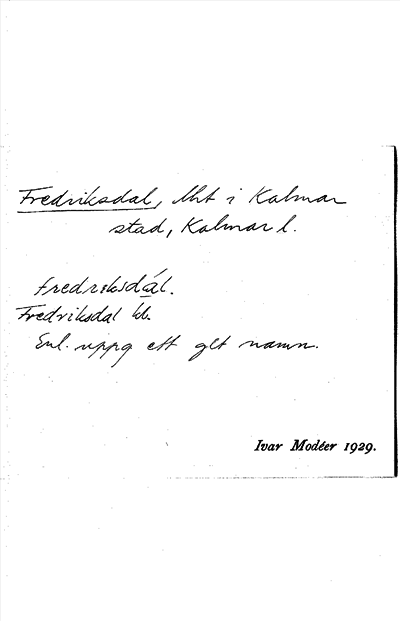 Fredriksdal, lht i Kalmar
stad, Kalmar l.
fredriksdál.
Fredriksdal kb.
Enl. uppg ett glt namn.
Ivar Modéer 1929.